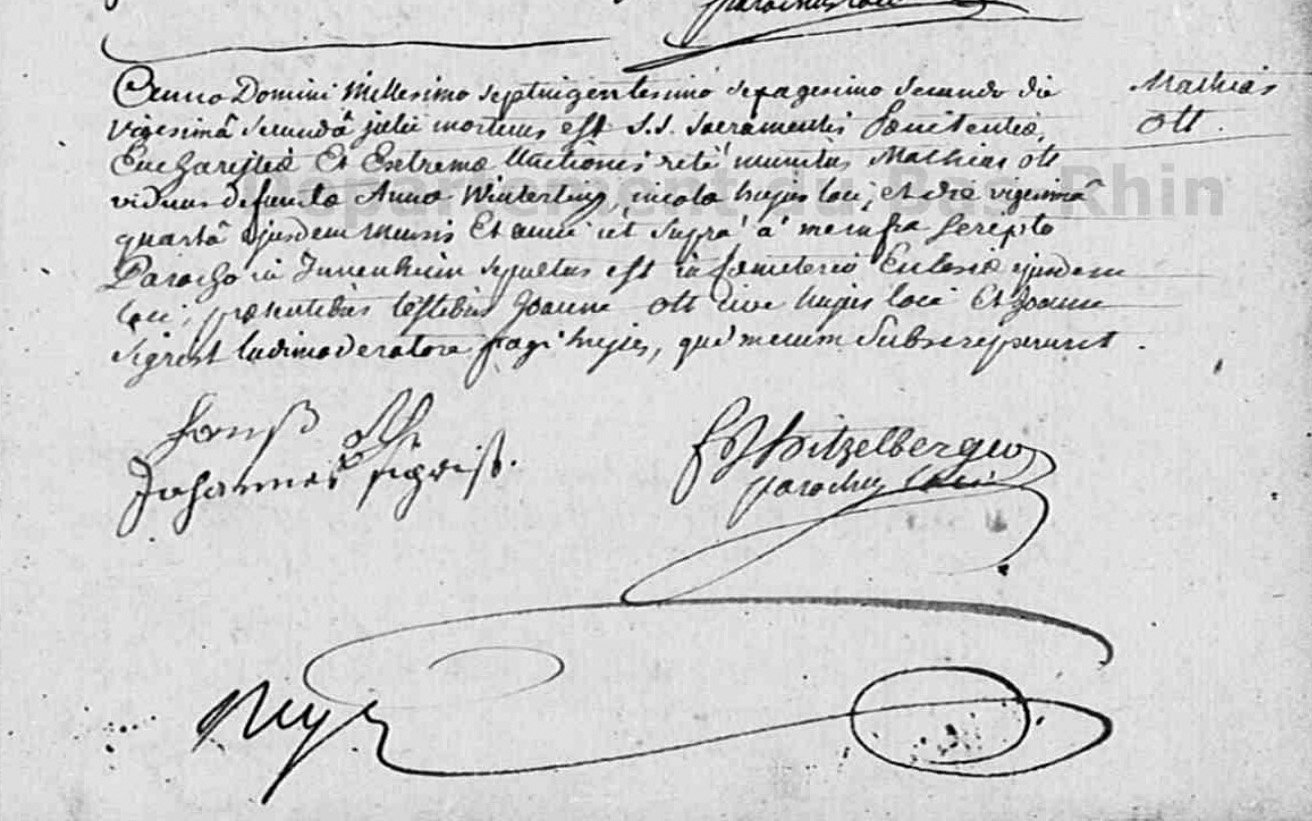 parochus loci
Anno Domini Millesimo Septuigentesimo sepagesimo secundo die
Mathias
Vigesimâ Secundâ julii mortuus est S.S. Sacramentis Poenitentiæ,
ott.
Eucharistiæ Et Extremæ Unctionis rité munitus Mathias ott
viduus defunctæ Annæ Winterling, incola hujus loci, et die vigesimâ
quartâ ejusdem mensis Et anni ut Supra á me infra Scripto
Parocho in Innenheim sepultus est in Coemeterio Eclesiæ ejusdem
loci, præsentibus testibus Joanne ott cive hujus loci Et Joanne
Sigrist ludimoderatore pagi hujus, qui mecum Subscripserunt.
Hanß Ott
Johannes Sigrist.
Hitzelberger
parochus loci
Département du Bas-Rhin